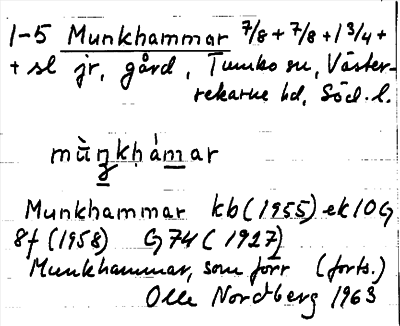 1-5 Munkhammar 7/8 + 7/8 + 1 3/4 +
+ sl jr, gård, Tumbo sn, Väster-
rekarne hd, Söd. l.
mùŋkhámar
Munkhammar kb (1955) ek 10G
8f (1958) G 74 (1927)
Munkhammar, som förr (forts.)
Olle Nordberg 1963